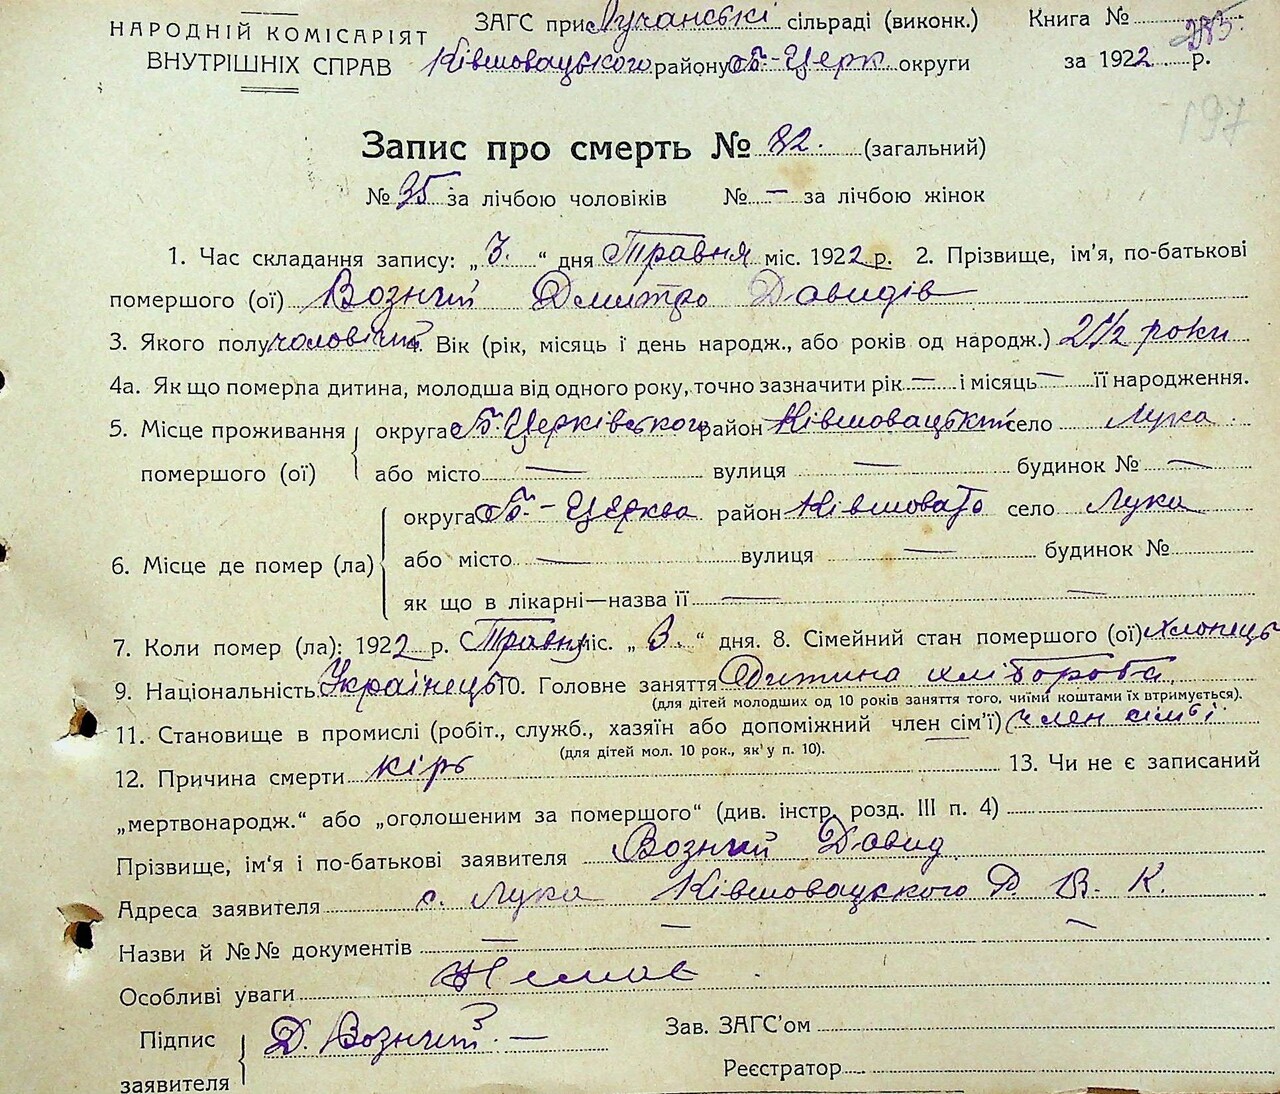 НАРОДНІЙ КОМІСАРІЯТ
ВНУТРІШНІХ СПРАВ
ЗАГС при Лучанські сільраді (виконк.)
Ківшовацького району Б.-Церк округи
Книга №
за 1922 р.
197
Запис про смерть № 82. (загальний)
№ 35 за лічбою чоловіків № — за лічбою жінок
1. Час складання запису: „3.“ дня Травня міс. 1922 р. 2. Прізвище, ім'я, по-батькові
помершого (ої) Возний Дмитро Давидів
3. Якого полу чоловічий 4. Вік (рік, місяць і день народж., або років од народж.) 2 1/2 роки
4а. Як що померла дитина, молодша від одного року, точно зазначити рік — і місяць — її народження.
5. Місце проживання помершого (ої) округа Б. Церківського район Ківшовацький село Лука
або місто — вулиця — будинок № —
6. Місце де помер (ла) округа Б.-Церква район Ківшовато село Лука
або місто — вулиця — будинок №
як що в лікарні—назва її — —
7. Коли помер (ла): 1922 р. Травня міс. „3.“ дня. 8. Сімейний стан помершого (ої) хлопець
9. Національність Українець 10. Головне заняття Дитина хлібороба
(для дітей молодших од 10 років заняття того, чиїми коштами їх втримується).
11. Становище в промислі (робіт., служб., хазяїн або допоміжний член сім'ї) член сімьї
(для дітей мол. 10 рок., як'у п. 10).
12. Причина смерти кірь 13. Чи не є записаний
„мертвонародж.“ або „оголошеним за помершого“ (див. інстр. розд. III п. 4)
Прізвище, ім'я і по-батькові заявителя Возний Давид
Адреса заявителя с. Лука Ківшовацького Р. В. К.
Назви й №№ документів — — —
Особливі уваги Немає
Підпис заявителя Д. Возний —
Зав. ЗАГС'ом
Реєстратор